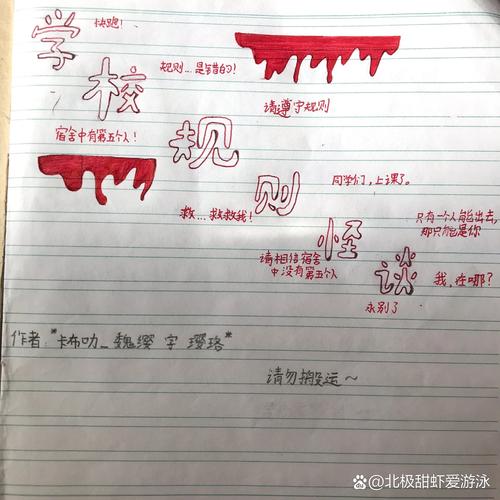 学校规则怪谈
快跑！
规则…是错的！
请遵守规则
宿舍中有第五个人！
同学们，上课了。
救…救救我！
只有一个人能出去，
那只能是你
请相信宿舍
中没有第五个人
我，在哪？
永别了
作者："卡布叻_魏缨 字 璎珞"
请勿搬运～
@北极甜虾爱游泳